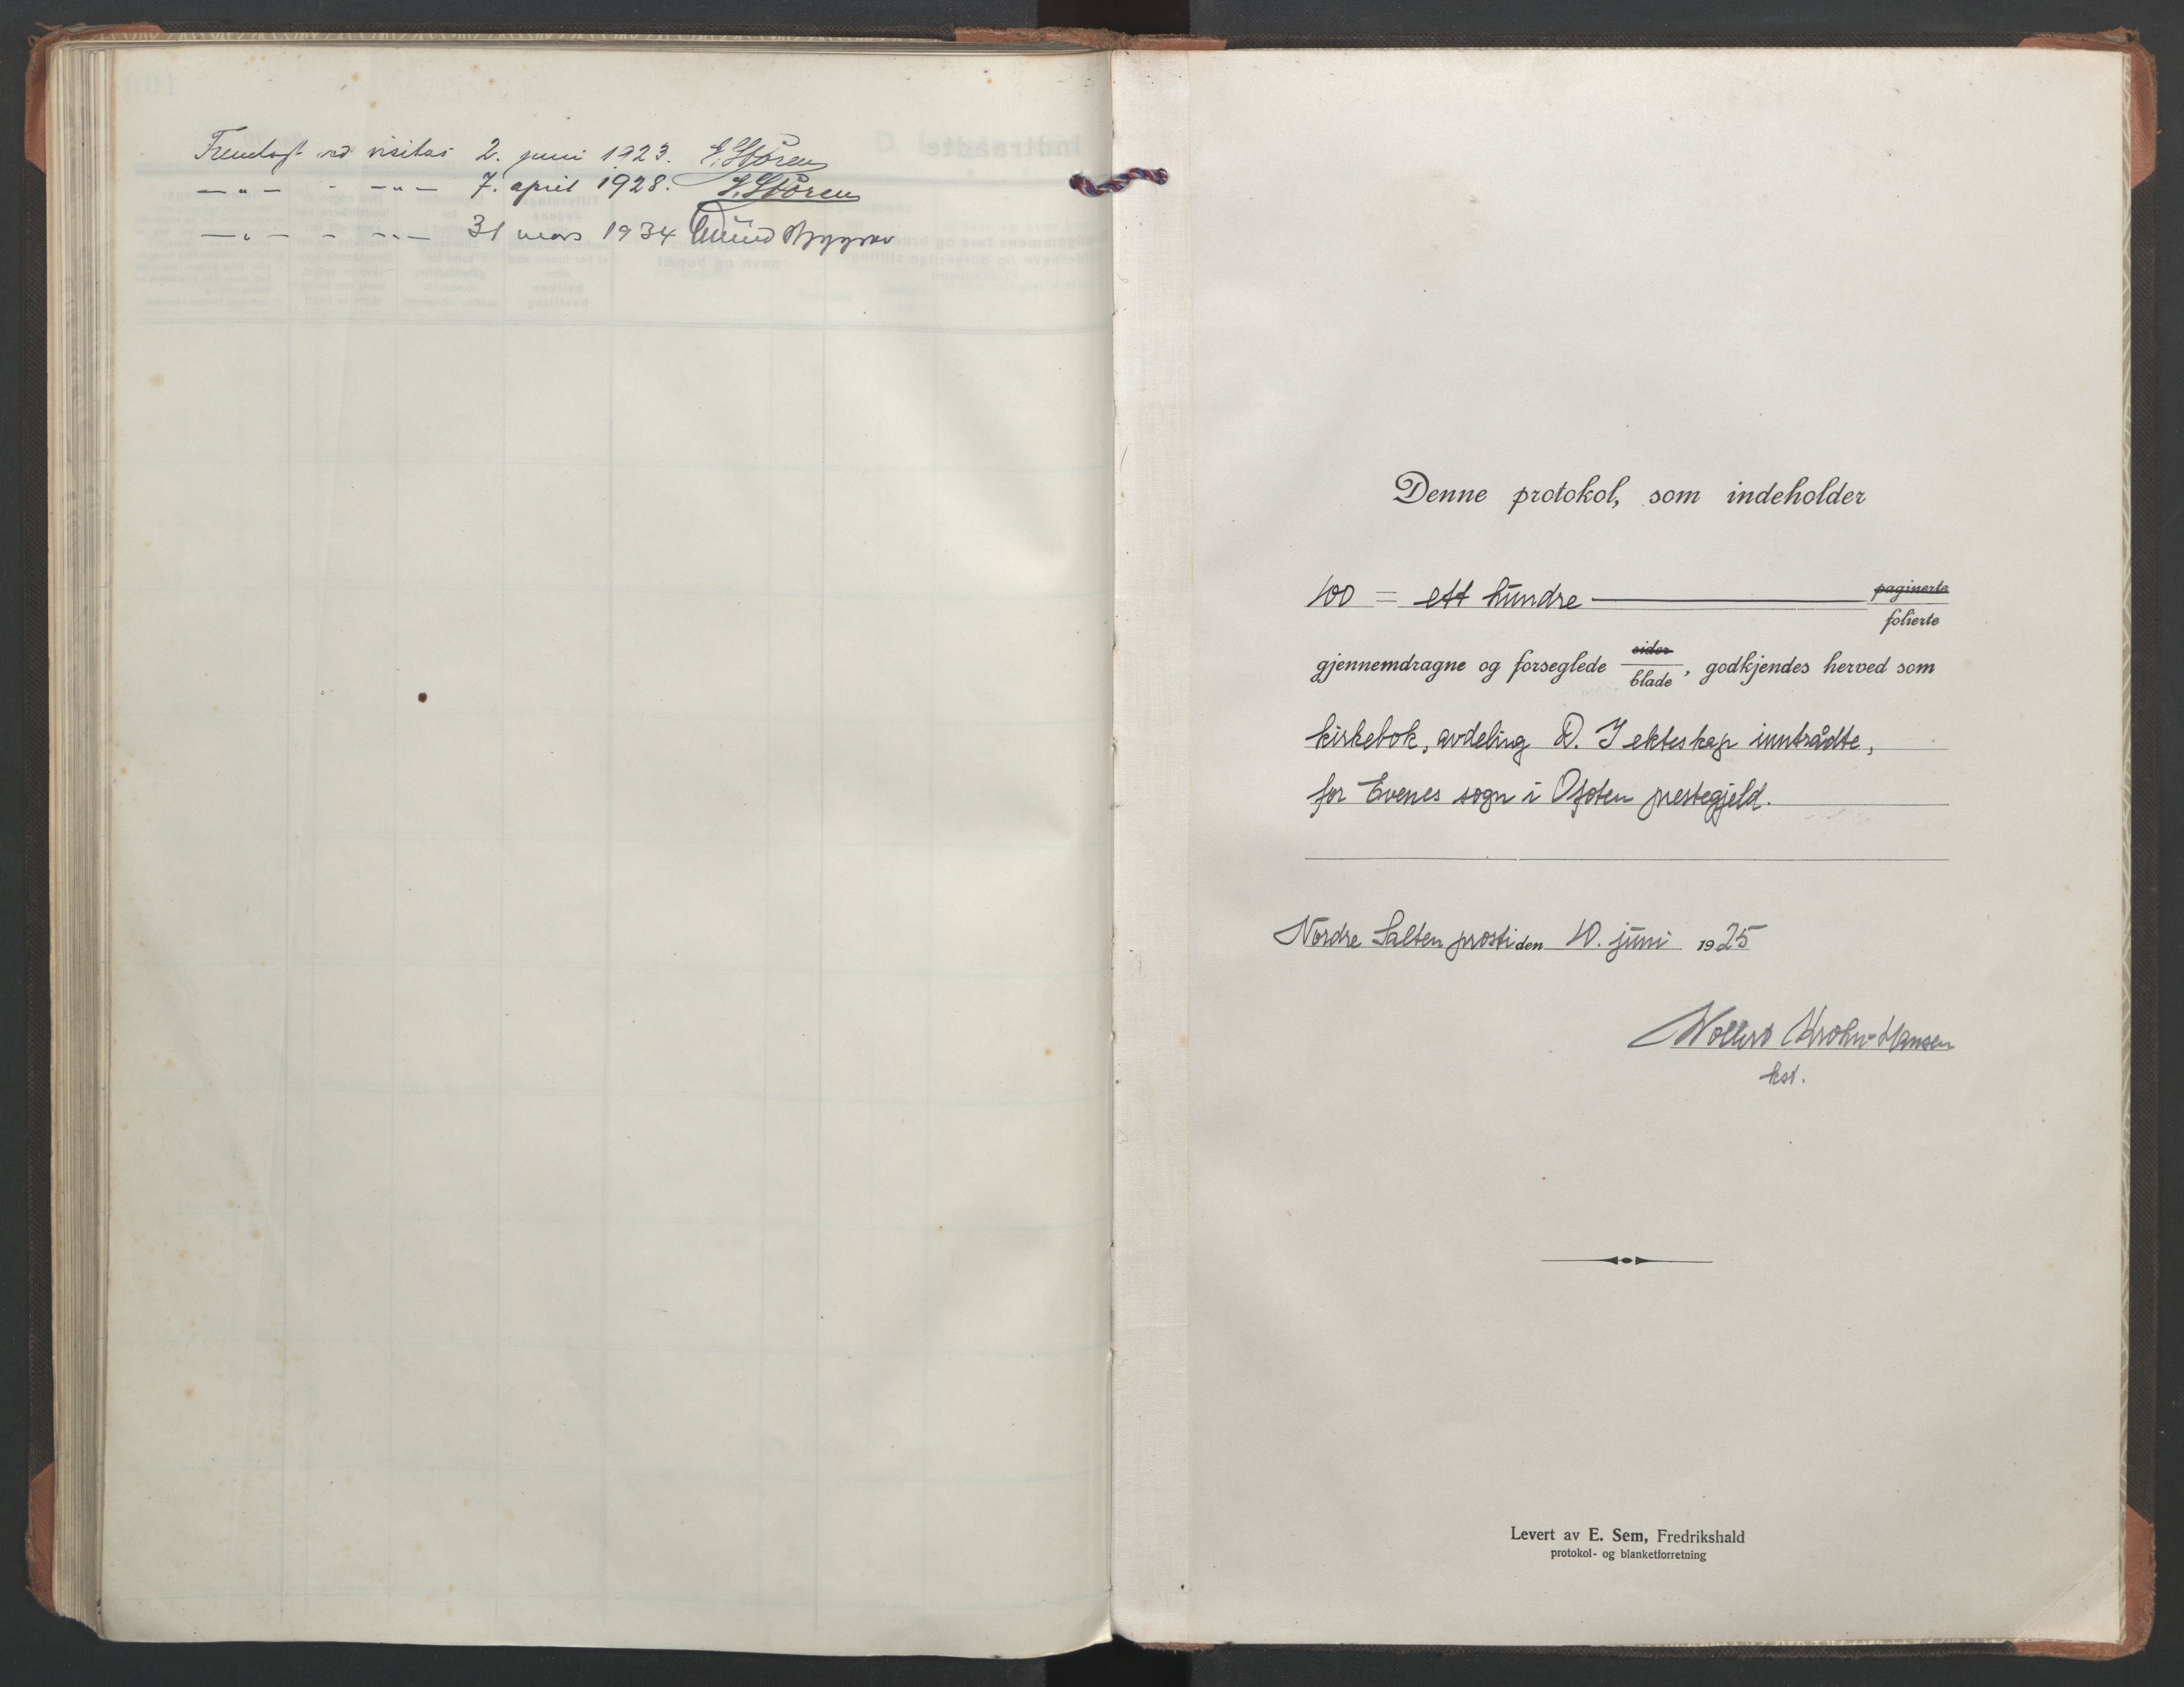 Fremlagt ved visitas 2. juni 1923. E. Støren
— " — - — " — 7. april 1928. E. Støren
— " — - — " — 31 mars 1934
Denne protokol, som indeholder
100 = ett hundre paginerte
folierte
gjennemdragne og forseglede sider
blade, godkjendes herved som
kirkebok, avdeling D. I ekteskap inntrådte,
for Evenes sogn i Ofoten prestegjeld.
Nordre Salten prosti den 10. juni 1925
Wollert Krohn-Hansen
kst.
Levert av E. Sem, Fredrikshald
protokol- og blanketforretning